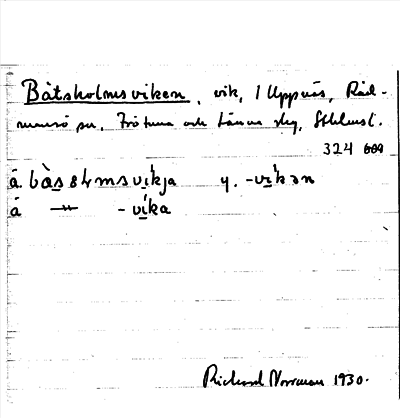 Båtsholmsviken, vik, 1 Uppnäs, Råd-
mansö sn, Frötuna och Länna skg, Sthlmsl.
324 609
å bàsshmsvíkja y. -víkən
å –"– -víka
Richard Norrman 1930.